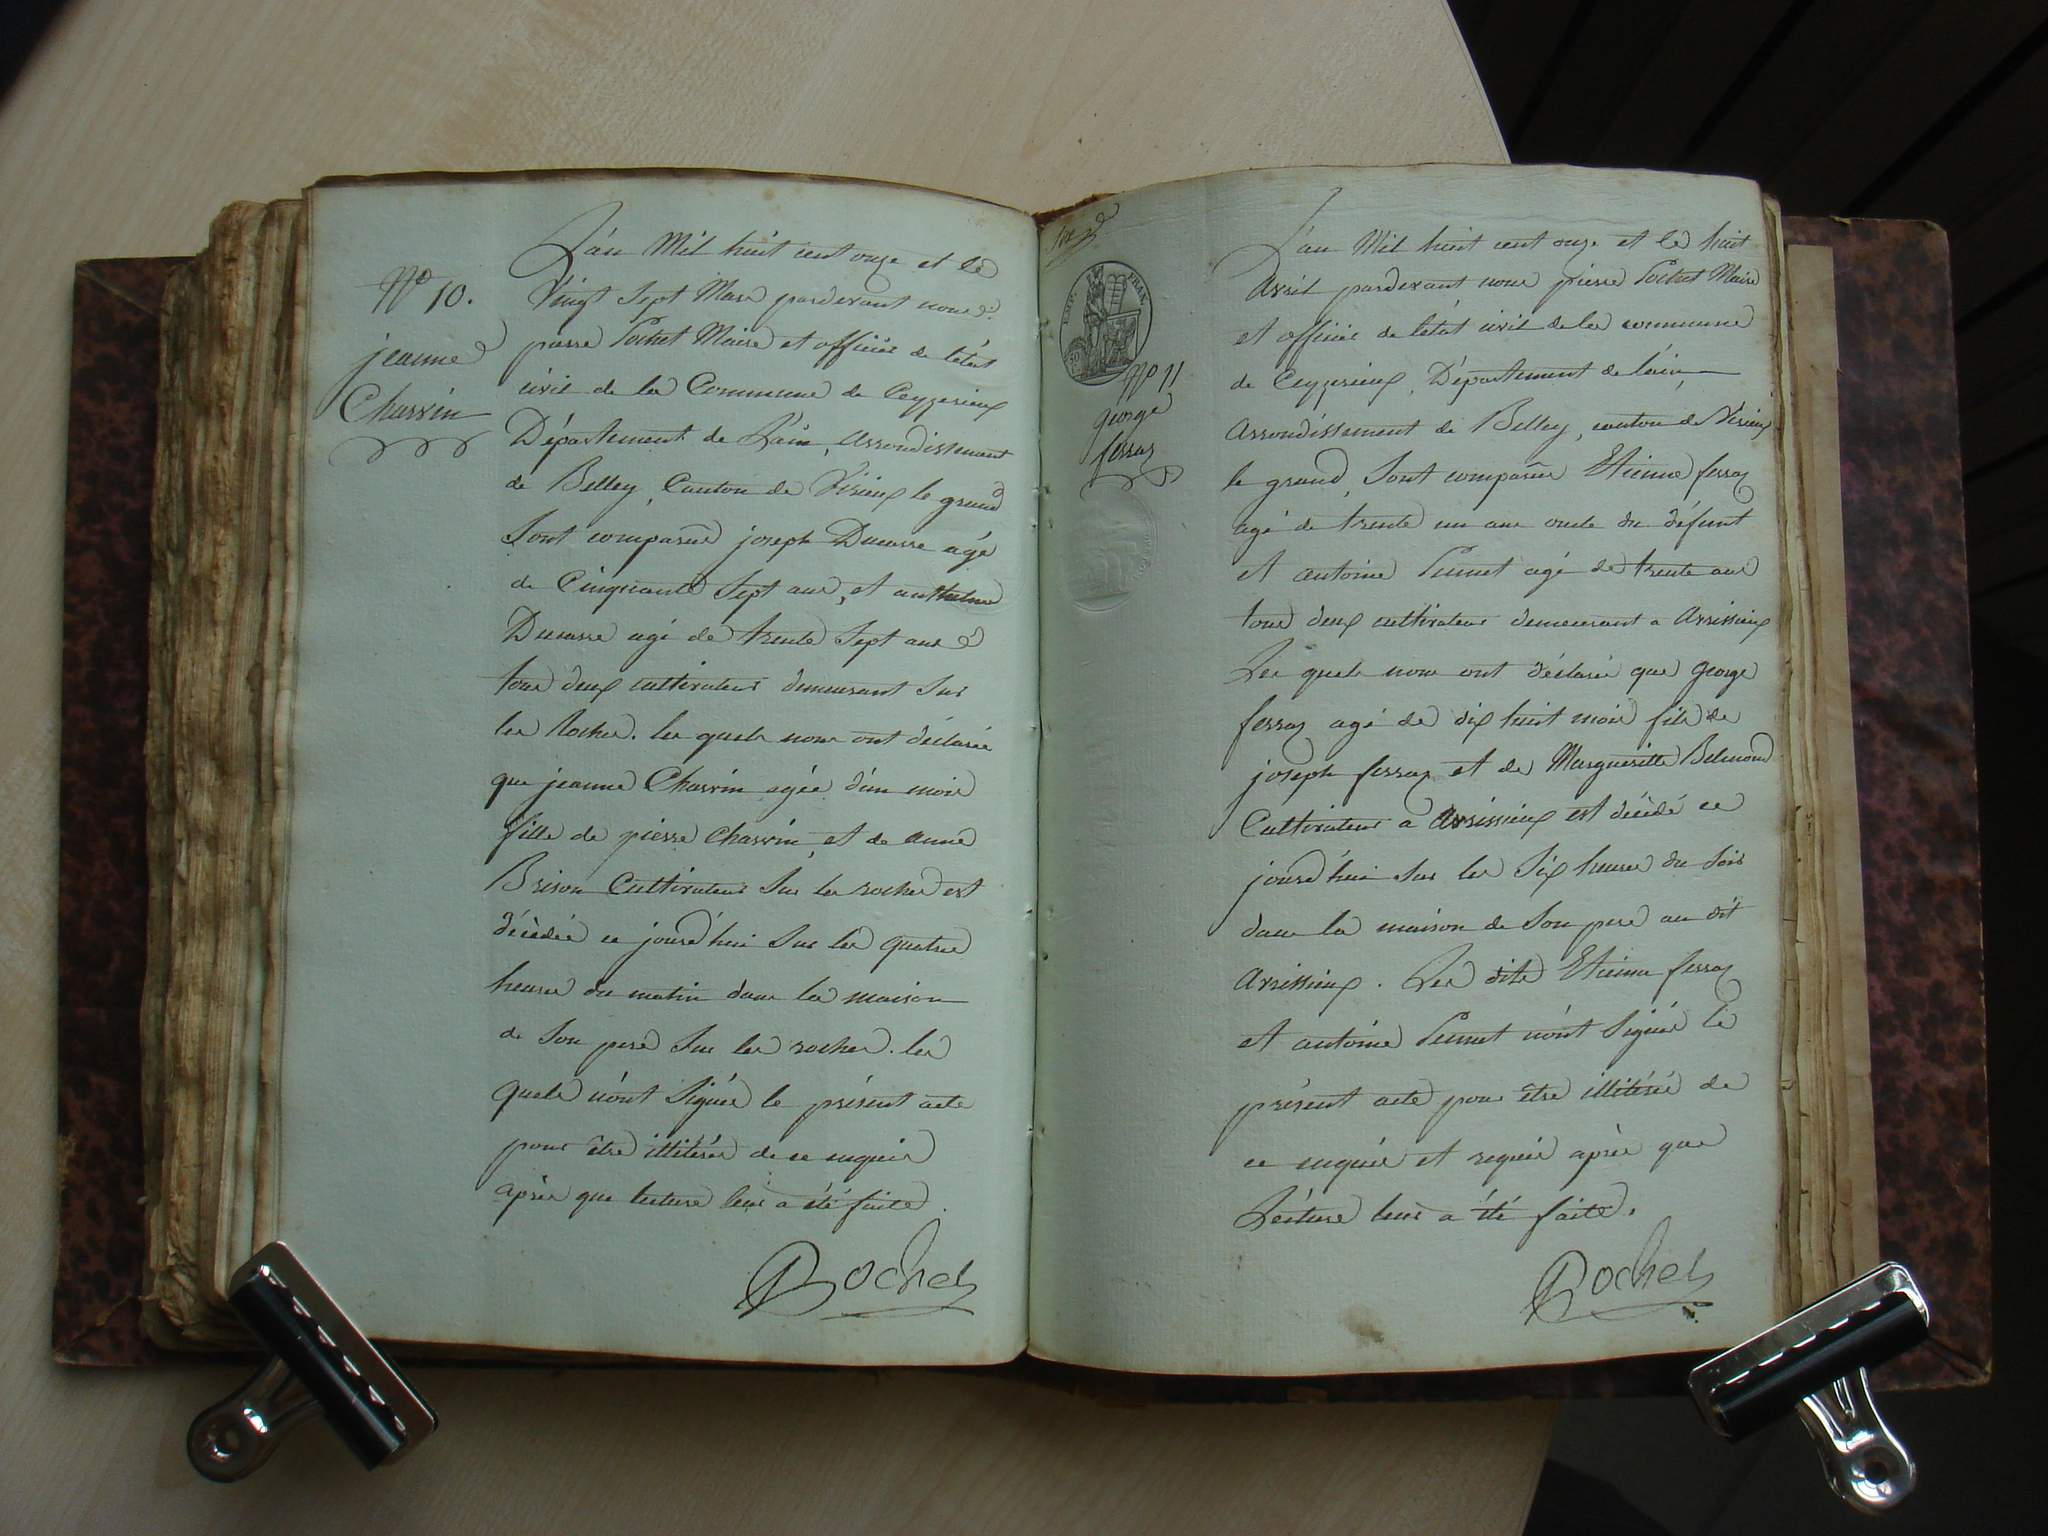 N° 10.
jeanne
Charvin
L'an Mil huit cent onze et le
Vingt Sept Mars pardevant nous
pierre Pochet Maire et officier de l'état
civil de la Commune de Ceyzerieux
Département de L'ain, arrondissement
de Belley, Canton de Virieux le grand
Sont comparus joseph Ducarre agé
de Cinquante Sept ans, et anthelme
Ducarre agé de trente Sept ans
tous deux cultivateurs demeurant sur
les Rocher. les quels nous ont déclarée
que jeanne Charvin agée d'un mois
fille de pierre Charvin, et de anne
Brison Cultivateurs Sur les rocher est
décédée ce jourd'hui Sur les quatre
heures du matin dans la maison
de Son pere Sur les rocher. les
quels n'ont Signés le présent acte
pour être illitérés de ce enquis
après que lecture leur a été faite.
Pochet
EMP. FRAN.
N° 11
george
ferraz
L'an Mil huit cent onze et le huit
Avril pardevant nous pierre Pochet Maire
et officier de l'état civil de la commune
de Ceyzerieux, Département de l'ain,
Arrondissement de Belley, canton de Virieux
le grand, Sont comparus Etienne ferraz
agé de trente un ans oncle du défunt
et antoine Peunet agé de trente ans
tous deux cultivateurs demeurant a Avrissieux
Les quels nous ont déclarés que george
ferraz agé de dix huit mois fils de
joseph ferraz et de Marguerite Belmond
Cultivateurs a Avrissieux est décédé ce
jourd'hui sur les Six heures du Soir
dans la maison de Son pere au dit
Avrissieux. Les dits Etienne ferraz
et antoine Peunet n'ont Signés le
présent acte pour être illitérés de
ce enquis et requis après que
Lecture leur a été faite.
Pochet